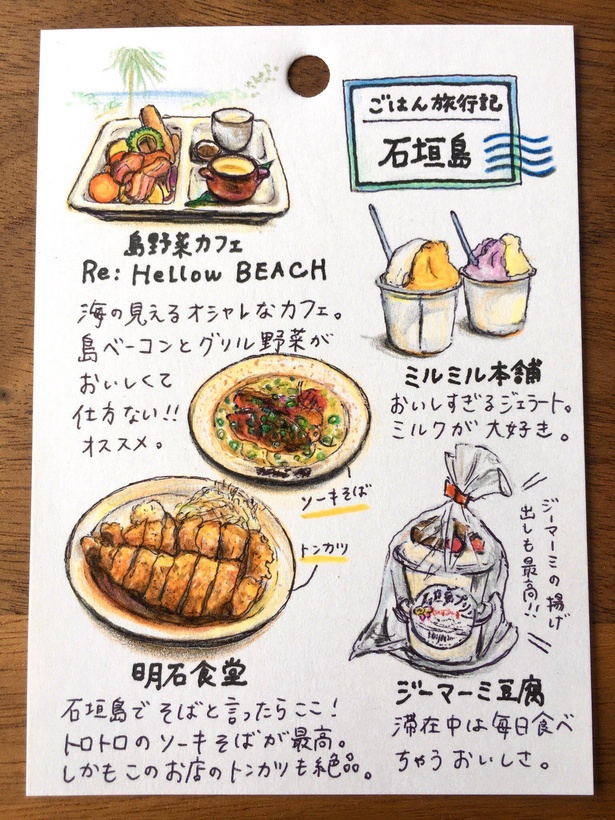 ごはん旅行記
石垣島
島野菜カフェ
Re: Hellow BEACH
海の見えるオシャレなカフェ。
島ベーコンとグリル野菜が
おいしくて
仕方ない!!
オススメ。
ミルミル本舗
おいしすぎるジェラート。
ミルクが大好き。
ソーキそば
トンカツ
明石食堂
石垣島でそばと言ったらここ!
トロトロのソーキそばが最高。
しかもこのお店のトンカツも絶品。
ジーマーミの揚げ
出しも最高!!
石垣島プリン
ジーマーミ豆腐
滞在中は毎日食べ
ちゃうおいしさ。